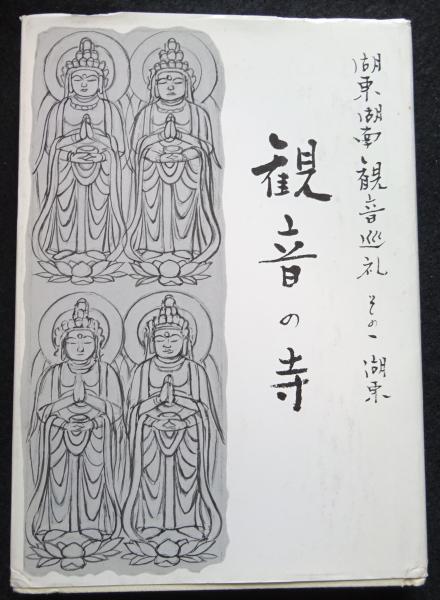 湖東湖南観音巡礼 その一 湖東
観音の寺